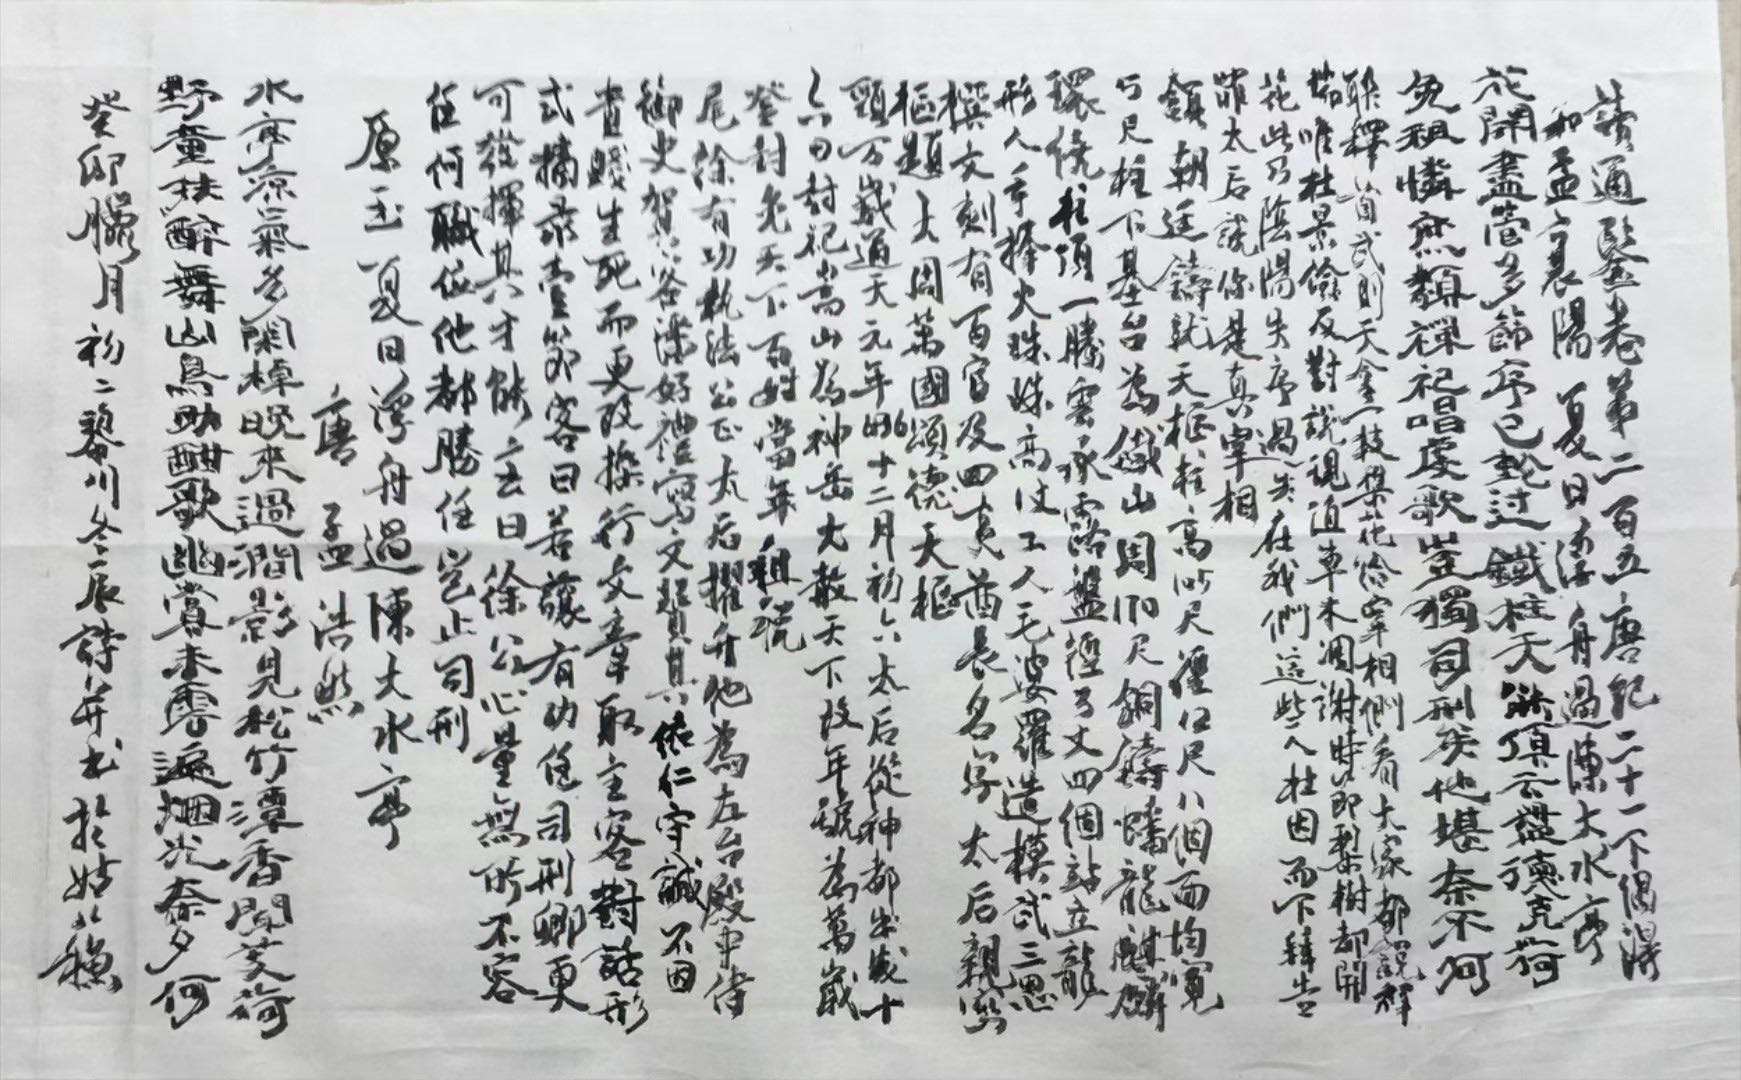 讀通鑒卷第二百五唐紀二十一下偶得
和孟襄陽夏日浮舟過陳大水亭
花開盡管多節序已乾过鐵柱天騰頂云盤德克荷
免租憐無類禪祀唱虔歌豈獨司刑矣他堪奈不何
聯釋首武則天拿一枝梨花给宰相們看大家都說祥
瑞唯杜景儉反對說現值草木凋谢時節梨樹却開
花此乃陰陽失序過失在我們這些人杜因而下拜告
罪太后說你是真宰相
額朝廷鑄就天樞柱高尺徑尺八個面均寬
尺柱下基台為鐵山周尺銅鑄蟠龍麒麟
環繞柱頂一騰雲承露盤徑丈四個站立龍
形人手捧火珠珠高丈工人毛婆羅造模武三思
撰文刻有百官及四夷酋長名字太后親寫
樞題大周萬國頌德天樞
頸万歲通天元年696十二月初六太后從神都出发十
六日封祀嵩山為神岳大赦天下改年號為萬歲
登封免天下百姓當年租税
尾徐有功執法公正太后擢升他為左台殿中侍
御史賀客潘好禮寫文贊其依仁守誠不因
貴賤生死而更改操行文章取主客對話形
式摘录壹節客曰若讓有功任司刑卿更
可發揮其才能主曰徐公心量無所不容
任何職位他都勝任岂止司刑
原玉夏日浮舟過陳大水亭
唐孟浩然
水亭凉氣多閑棹晚來過澗影見松竹潭香聞芰荷
野童扶醉舞山鳥助酣歌幽賞未雲遍烟光奈夕何
癸卯臘月初二黎川冬辰詩并书於姑蘇